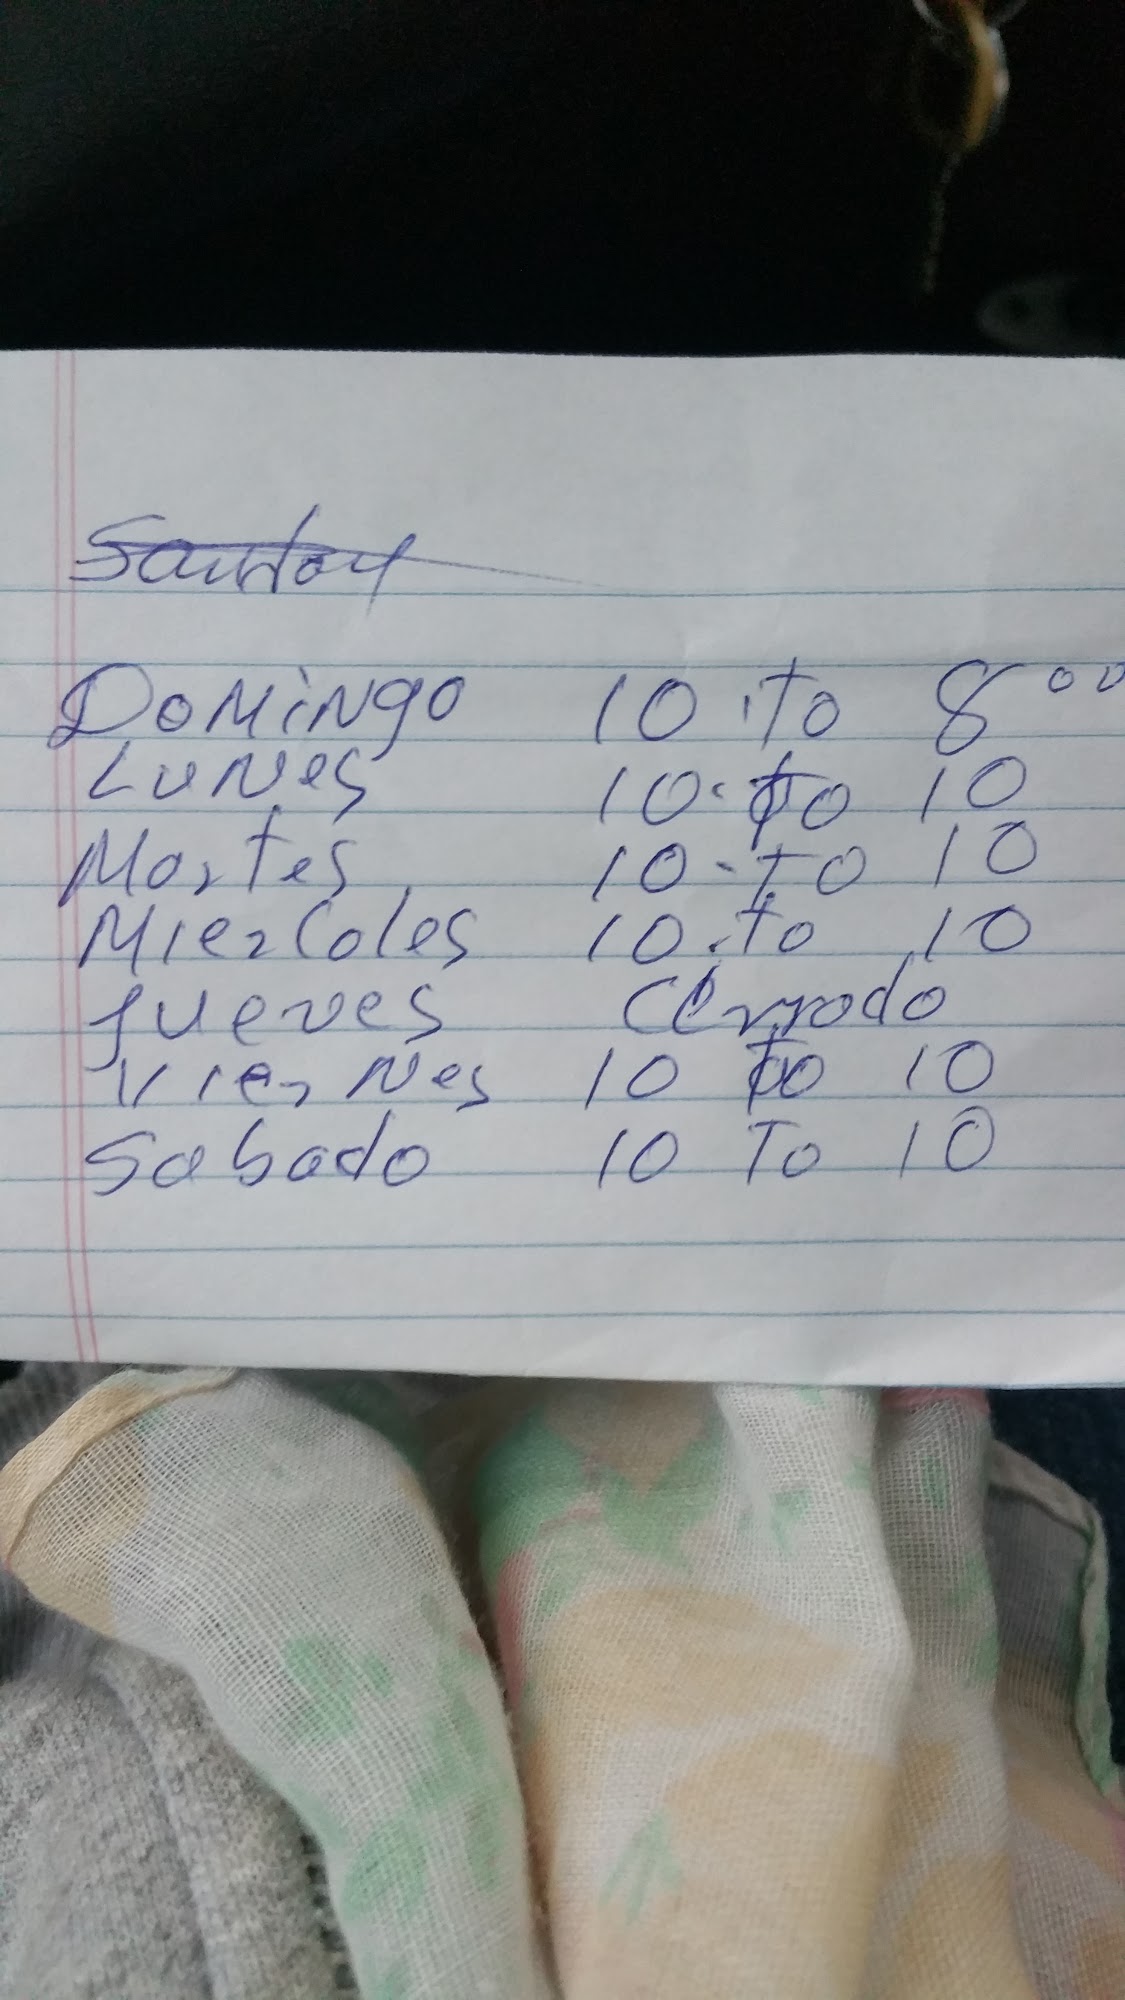 Sunday
Domingo 10 to 8⁰⁰
Lunes 10 to 10
Martes 10 - to 10
Miercoles 10 to 10
Jueves Cerrado
Viernes 10 to 10
Sabado 10 To 10